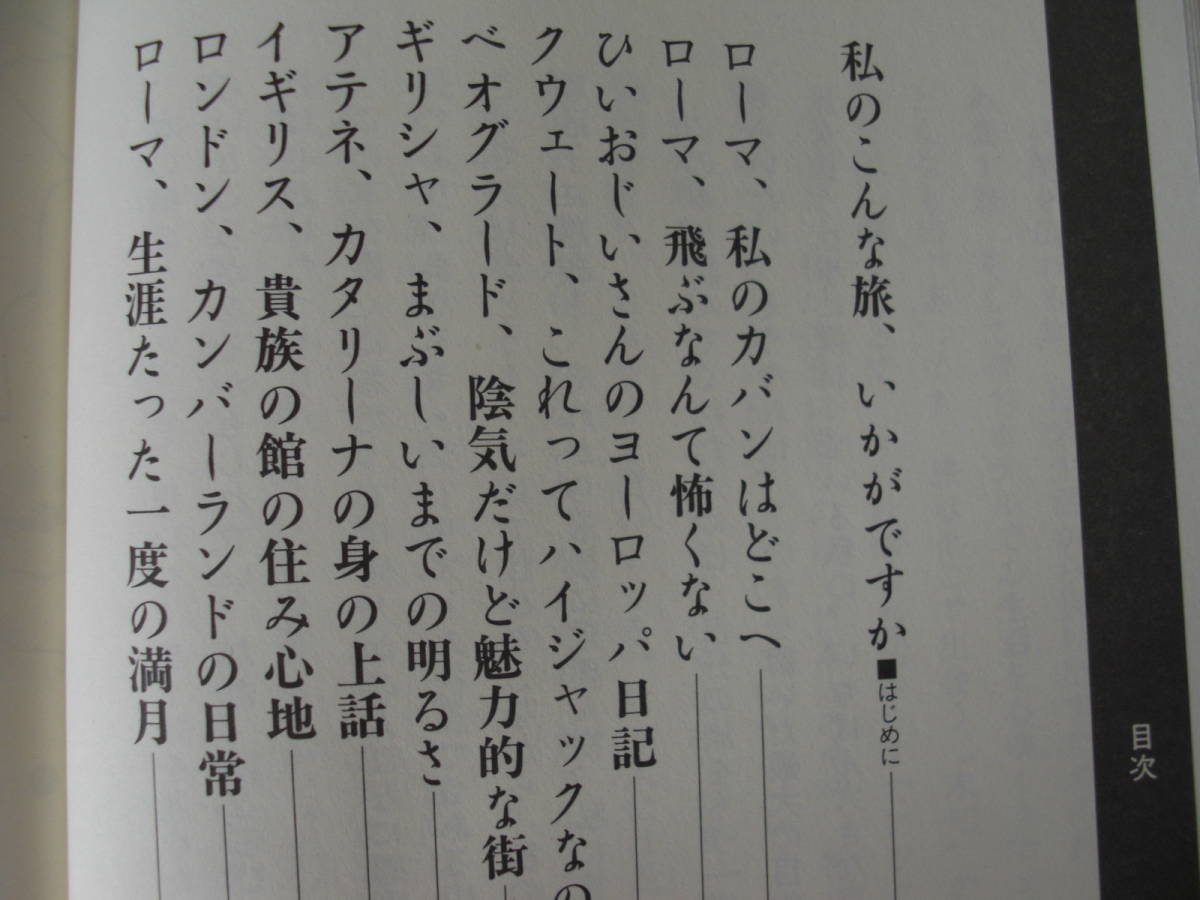 目次
私のこんな旅、いかがですか■はじめに
ローマ、私のカバンはどこへ
ローマ、飛ぶなんて怖くない
ひいおじいさんのヨーロッパ日記
クウェート、これってハイジャックなの
ベオグラード、陰気だけど魅力的な街
ギリシャ、まぶしいまでの明るさ
アテネ、カタリーナの身の上話
イギリス、貴族の館の住み心地
ロンドン、カンバーランドの日常
ローマ、生涯たった一度の満月